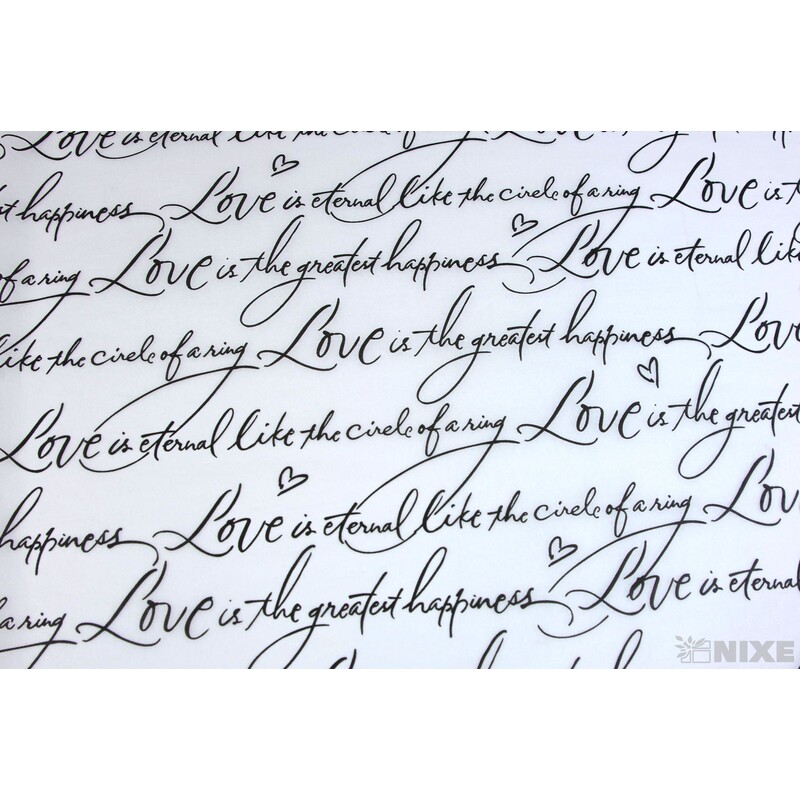 Love is eternal like the circle of a ring
st happiness Love is eternal like the circle of a ring Love is t
of a ring Love is the greatest happiness Love is eternal lik
like the circle of a ring Love is the greatest happiness Love
Love is eternal like the circle of a ring Love is the greatest
happiness Love is eternal like the circle of a ring Lov
a ring Love is the greatest happiness Love is eternal
NIXE